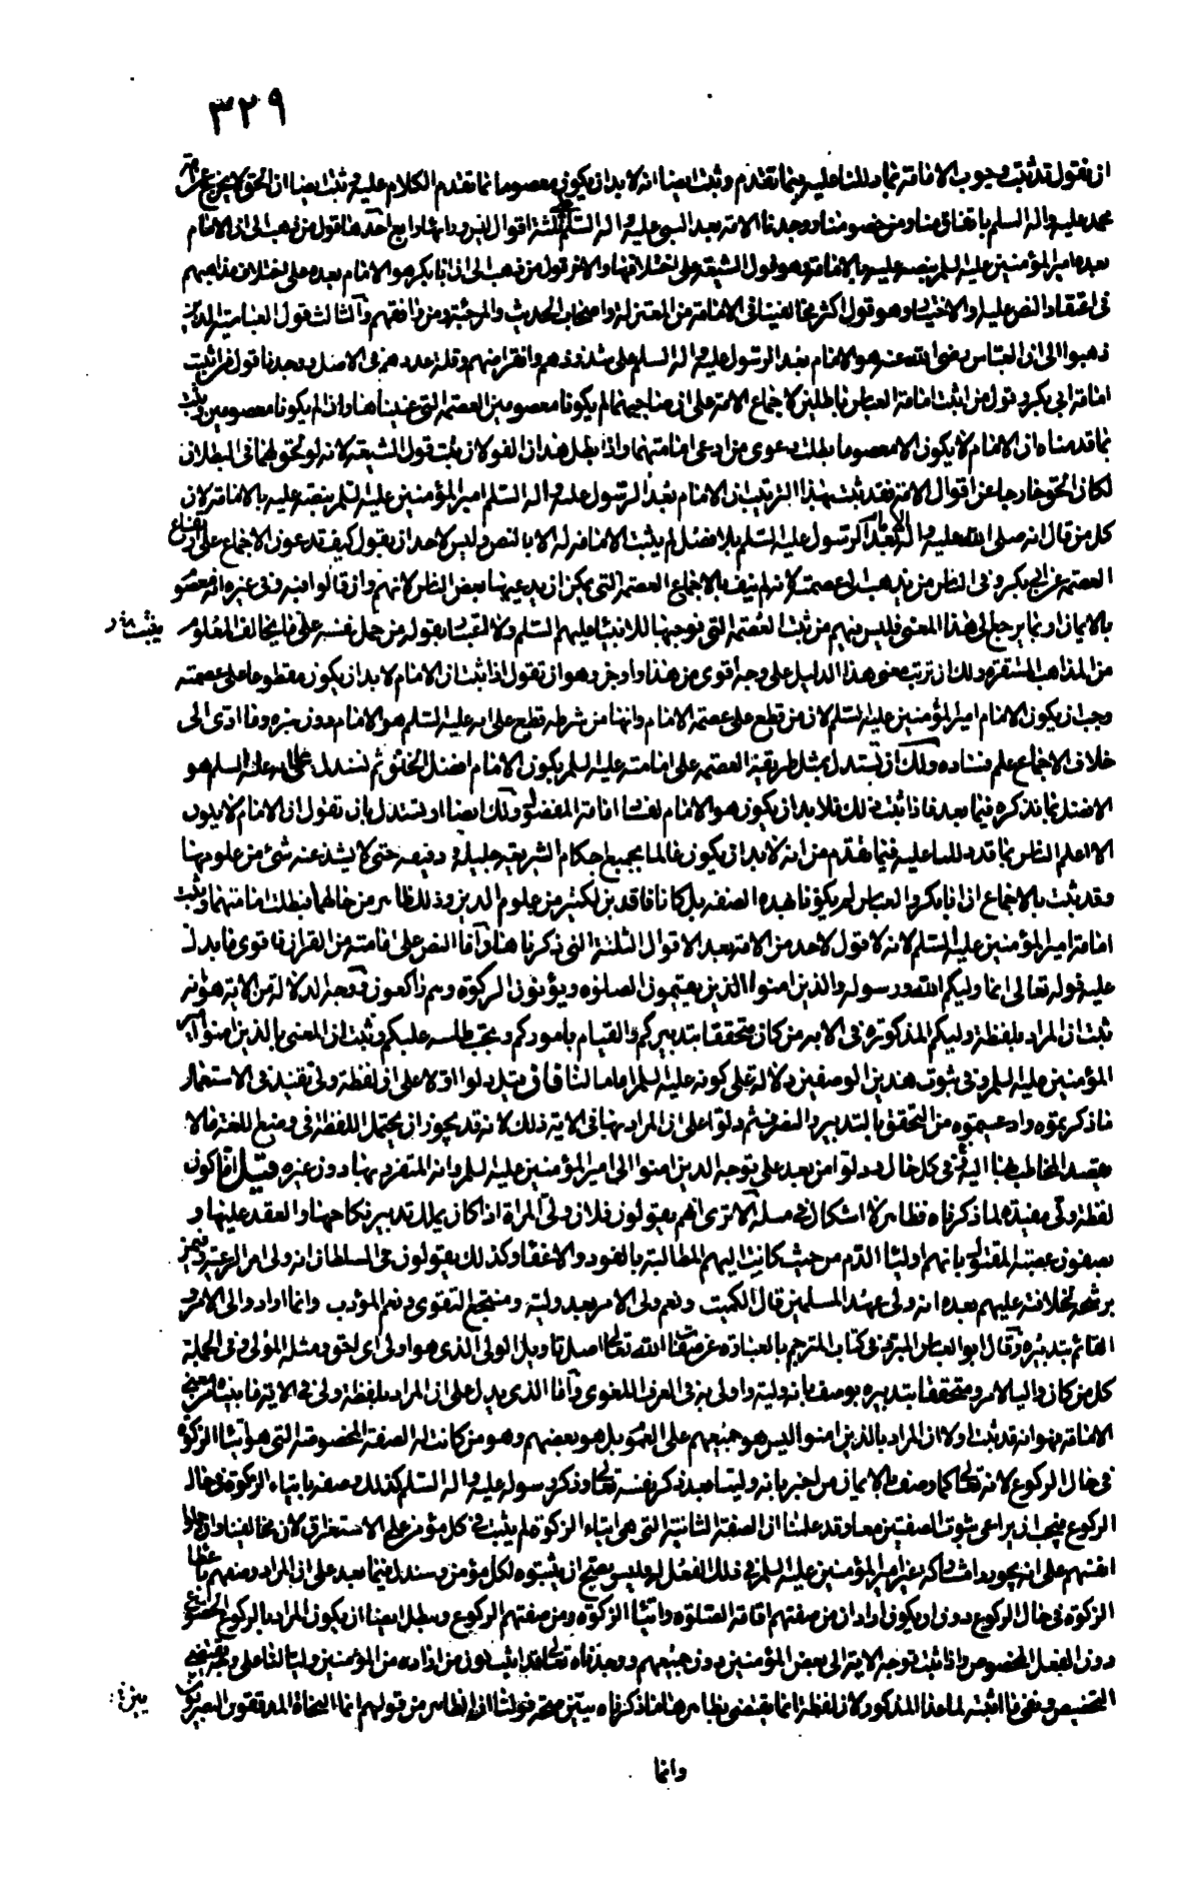 ٣٢٩
ان نقول قد ثبت وجوب الامامة بما دللنا عليه فيما تقدم وثبت ايضا انه لا بد ان يكون معصوما بما تقدم الكلام عليه وثبت ايضا ان الحق لا يخرج عن امة
محمد عليه واله السلم باتفاق منا ومن خصومنا ووجدنا الامة بعد النبي عليه واله السلم على ثلثة اقوال ليس وراءها رابع احدها قول من ذهب الى ان الامام
بعده امير المؤمنين عليه السلم بنصه عليه بالامامة وهو قول الشيعة على اختلافها والاخر قول من ذهب الى ان ابا بكر هو الامام بعده على اختلاف مذاهبهم
في اعتقاد النص عليه او الاختيار وهو قول اكثر مخالفينا في الامامة من المعتزلة واصحاب الحديث والمرجئة ومن وافقهم والثالث قول العباسية الذين
ذهبوا الى ان العباس رضي الله عنه هو الامام بعد الرسول عليه واله السلم على شذوذهم وانقراضهم وقلة عددهم في الاصل ووجدنا قول من اثبت
امامة ابي بكر وقول من اثبت امامة العباس باطلين لاجماع الامة على ان صاحبيهما لم يكونا معصومين العصمة التي عنيناها واذا لم يكونا معصومين وثبت
بما قدمناه ان الامام لا يكون الا معصوما بطلت دعوى من ادعى امامتهما واذا بطل هذان القولان ثبت قول الشيعة لانه لو لحق بهما في البطلان
لكان الحق خارجا عن اقوال الامة فقد ثبت بهذا الترتيب ان الامام بعد الرسول عليه واله السلم امير المؤمنين عليه السلم بنصه عليه بالامامة لان
كل من قال انه صلى الله عليه واله الامام بعد الرسول عليه السلم بلا فصل لم يثبت الامامة له الا بالنص وليس لاحد ان يقول كيف تدعون الاجماع على انتفاء
العصمة عن ابي بكر وفي الناس من يذهب الى عصمته لانه لم ينف بالاجماع العصمة التي يمكن ان يدعيها بعض الناس لانهم وان قالوا فيه وفي غيره انه معصوم
بالايمان او بما يرجع الى هذا المعنى فليس فيهم من يثبت العصمة التي نوجبها للانبياء عليهم السلم ولا اعتبار بقوله من حمل نفسه على ما يخالف المعلوم
من المذاهب المستقرة ولك ان ترتب معنى هذا الدليل على وجه اقوى من هذا واوجز وهو ان تقول اذا ثبت ان الامام لا بد ان يكون مقطوعا على عصمته
وجب ان يكون الامام امير المؤمنين عليه السلم لان من قطع على عصمة الامام وانها من شرطه قطع على انه عليه السلم هو الامام دون غيره وما ادى الى
خلاف الاجماع علم فساده ولك ان تستدل بمثل طريقة العصمة على امامته عليه السلم بكون الامام افضل الخلق ثم تستدل على انه عليه السلم هو
الافضل بما نذكره فيما بعد فاذا ثبت ذلك فلا بد ان يكون هو الامام لفساد امامة المفضول ولك ايضا ان تستدل بان تقول ان الامام لا يكون
الا اعلم الناس بما قد دللنا عليه فيما تقدم من انه لا بد ان يكون عالما بجميع احكام الشريعة جليله ودقيقه حتى لا يشذ عنه شئ من علومها
وقد ثبت بالاجماع ان ابا بكر والعباس لم يكونا بهذه الصفة بل كانا فاقدين لكثير من علوم الدين وذلك ظاهر من حالهما فبطلت امامتهما وثبت
امامة امير المؤمنين عليه السلم لانه لا قول لاحد من الامة بعد الاقوال الثلثة التي ذكرناها واما النص على امامته من القران فاقوى ما يدل
عليه قوله تعالى انما وليكم الله ورسوله والذين امنوا الذين يقيمون الصلوة ويؤتون الزكوة وهم راكعون ووجه الدلالة من الاية هو انه
ثبت ان المراد بلفظة وليكم المذكورة في الاية من كان متحققا بتدبيركم والقيام باموركم ويجب طاعته عليكم وثبت ان المعنى بالذين امنوا امير
المؤمنين عليه السلم وفي ثبوت هذين الوصفين دلالة على كونه عليه السلم اماما لنا فان قيل دلوا اولا على ان لفظة ولي تفيد في الاستعمال
ما ذكرتموه وادعيتموه من التحقق بالتدبير والتصرف ثم دلوا على ان المراد بها في الاية ذلك لانه قد يجوز ان يحتمل اللفظة في وضع اللغة ما لا
يقصد المخاطب بها اليه في كل حال ودلوا من بعد على توجه الذين امنوا الى امير المؤمنين عليه السلم وانه المتفرد بها دون غيره قيل اما كون
لفظة ولي مفيدة لما ذكرناه فظاهر لا اشكال في مثله الا ترى انهم يقولون فلان ولي المراة اذا كان يملك تدبير نكاحها والعقد عليها و
يصفون عصبة المقتول بانهم اولياء الدم من حيث كانت اليهم المطالبة بالقود والاعفاء وكذلك يقولون في السلطان انه ولي امر الرعية وفيمن
يرشحه لخلافته عليهم بعده انه ولي عهد المسلمين قال الكميت ونعم ولي الامر بعد وليه ومنتجع التقوى ونعم المؤدب وانما اراد والي الامر و
القائم بتدبيره وقال ابو العباس المبرد في كتاب المترجم بالعبارة عن صفات الله تعالى اصل تاويل الولي الذي هو اولى اي احق ومثله المولى وفي الجملة
كل من كان واليا لامر ومتحققا بتدبيره يوصف بانه وليه واولى به في العرف اللغوي واما الذي يدل على ان المراد بلفظة ولي في الاية ما بيناه من معنى
الامامة فهو انه قد ثبت اولا ان المراد بالذين امنوا ليس هو جميعهم على العموم بل هو بعضهم وهو من كانت له الصفة المخصوصة التي هي ايتاء الزكوة
في حال الركوع لانه تعالى كما وصف بالايمان من اخبر بانه ولينا بعد ذكر نفسه تعالى وذكر رسوله عليه واله السلم كذلك وصفه بايتاء الزكوة في حال
الركوع فيجب ان يراعى ثبوت الصفتين معا وقد علمنا ان الصفة الثانية التي هي ايتاء الزكوة لم يثبت في كل مؤمن على الاستغراق لان مخالفينا وان حملوا
انفسهم على ان يجوزوا مشاركة غير امير المؤمنين عليه السلم في ذلك الفعل له فليس يصح ان يثبتوه لكل مؤمن وسندل فيما بعد على ان المراد وصفهم باعطاء
الزكوة في حال الركوع دون ان يكون اراد ان من صفتهم اقامة الصلوة وايتاء الزكوة ومن صفتهم الركوع ونبطل ايضا ان يكون المراد بالركوع الخضوع
دون الفعل المخصوص واذا ثبت توجه الاية الى بعض المؤمنين دون جميعهم ووجدناه تعالى قد اثبت كون من اراده من المؤمنين وليا لنا على وجه يقتضي
التخصيص ونفي ما اثبته لمن عدا المذكور لان لفظة انما يقتضي بظاهرها ما ذكرناه يبين صحة قولنا ان الظاهر من قولهم انما النحاة المدققون البصريون
وانما